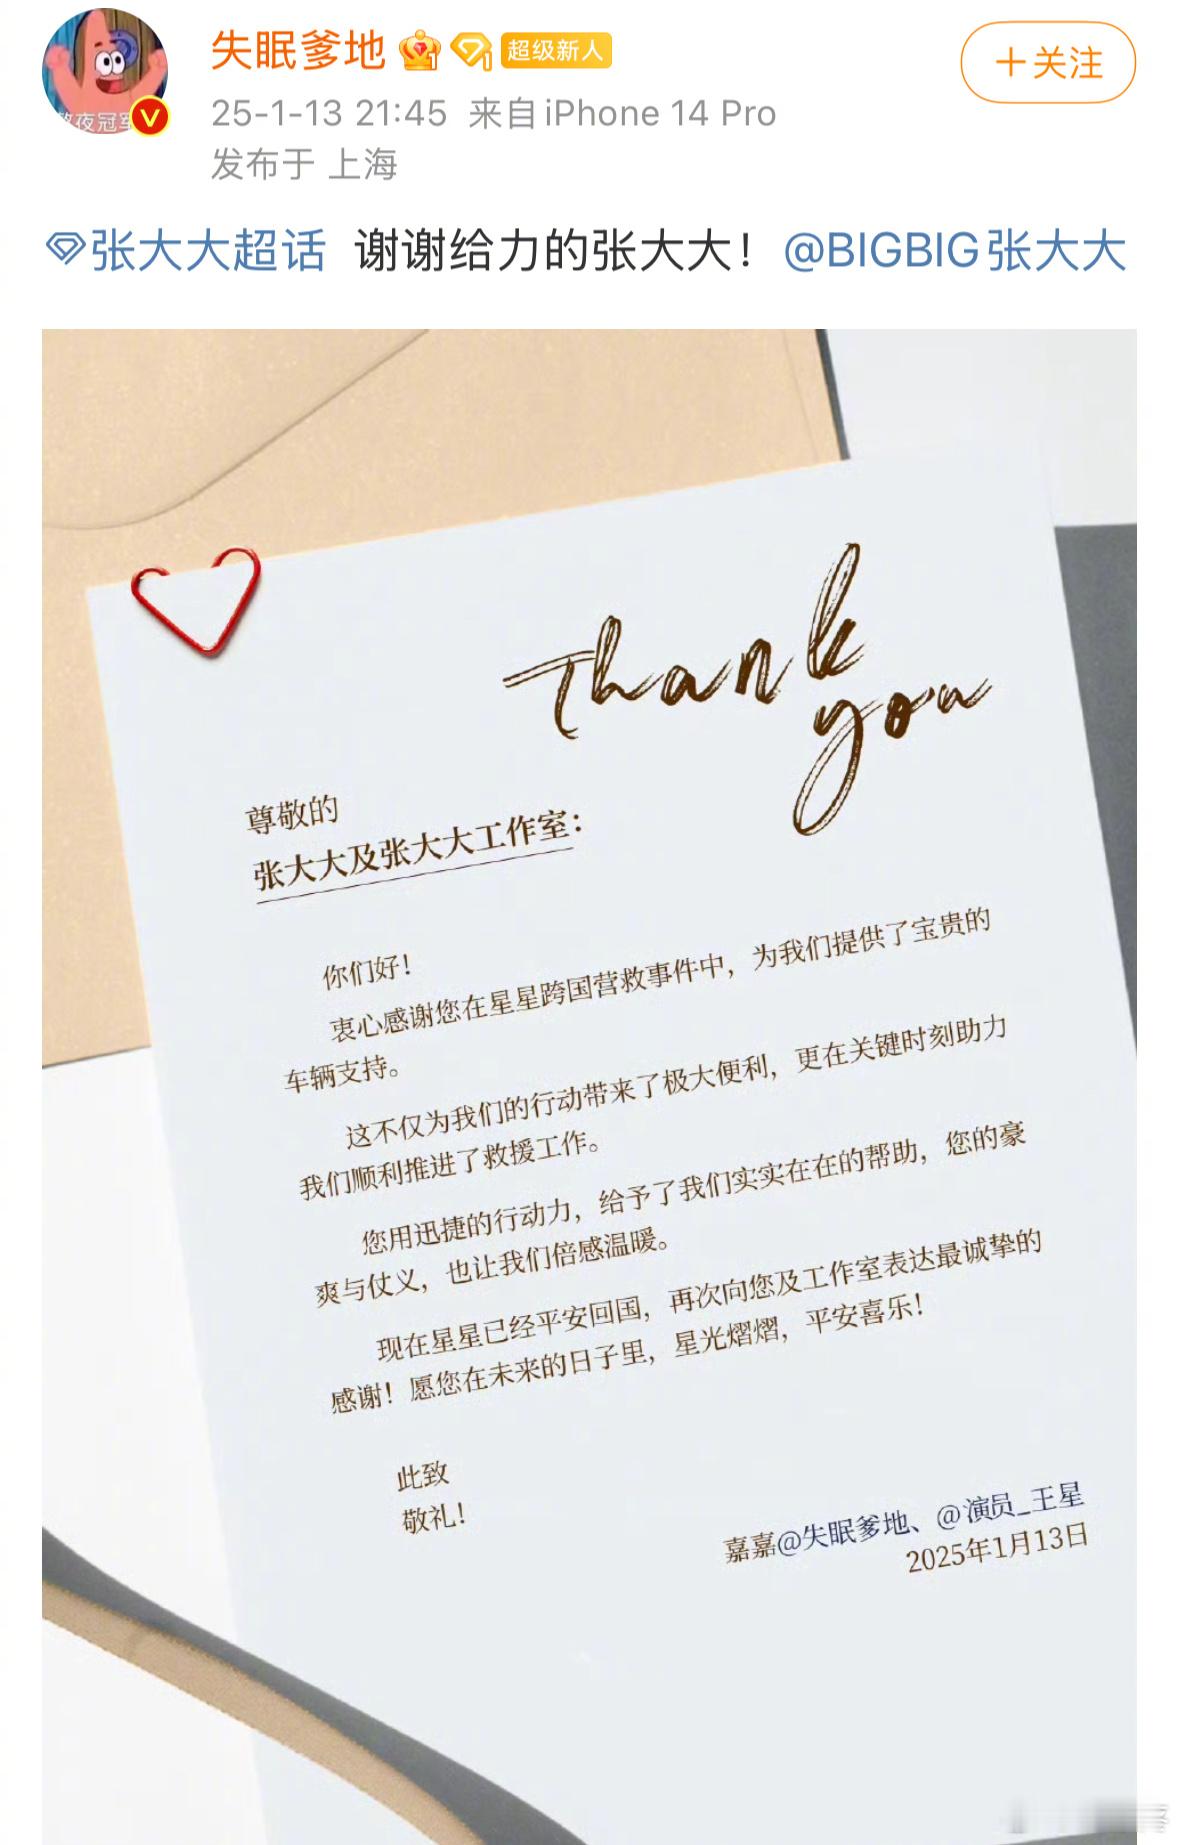 失眠爹地 超级新人
+关注
25-1-13 21:45 来自 iPhone 14 Pro
发布于 上海
张大大超话 谢谢给力的张大大！@BIGBIG张大大
Thank
you
尊敬的
张大大及张大大工作室：
你们好！
衷心感谢您在星星跨国营救事件中，为我们提供了宝贵的
车辆支持。
这不仅为我们的行动带来了极大便利，更在关键时刻助力
我们顺利推进了救援工作。
您用迅捷的行动力，给予了我们实实在在的帮助，您的豪
爽与仗义，也让我们倍感温暖。
现在星星已经平安回国，再次向您及工作室表达最诚挚的
感谢！愿您在未来的日子里，星光熠熠，平安喜乐！
此致
敬礼！
嘉嘉@失眠爹地、@演员_王星
2025年1月13日